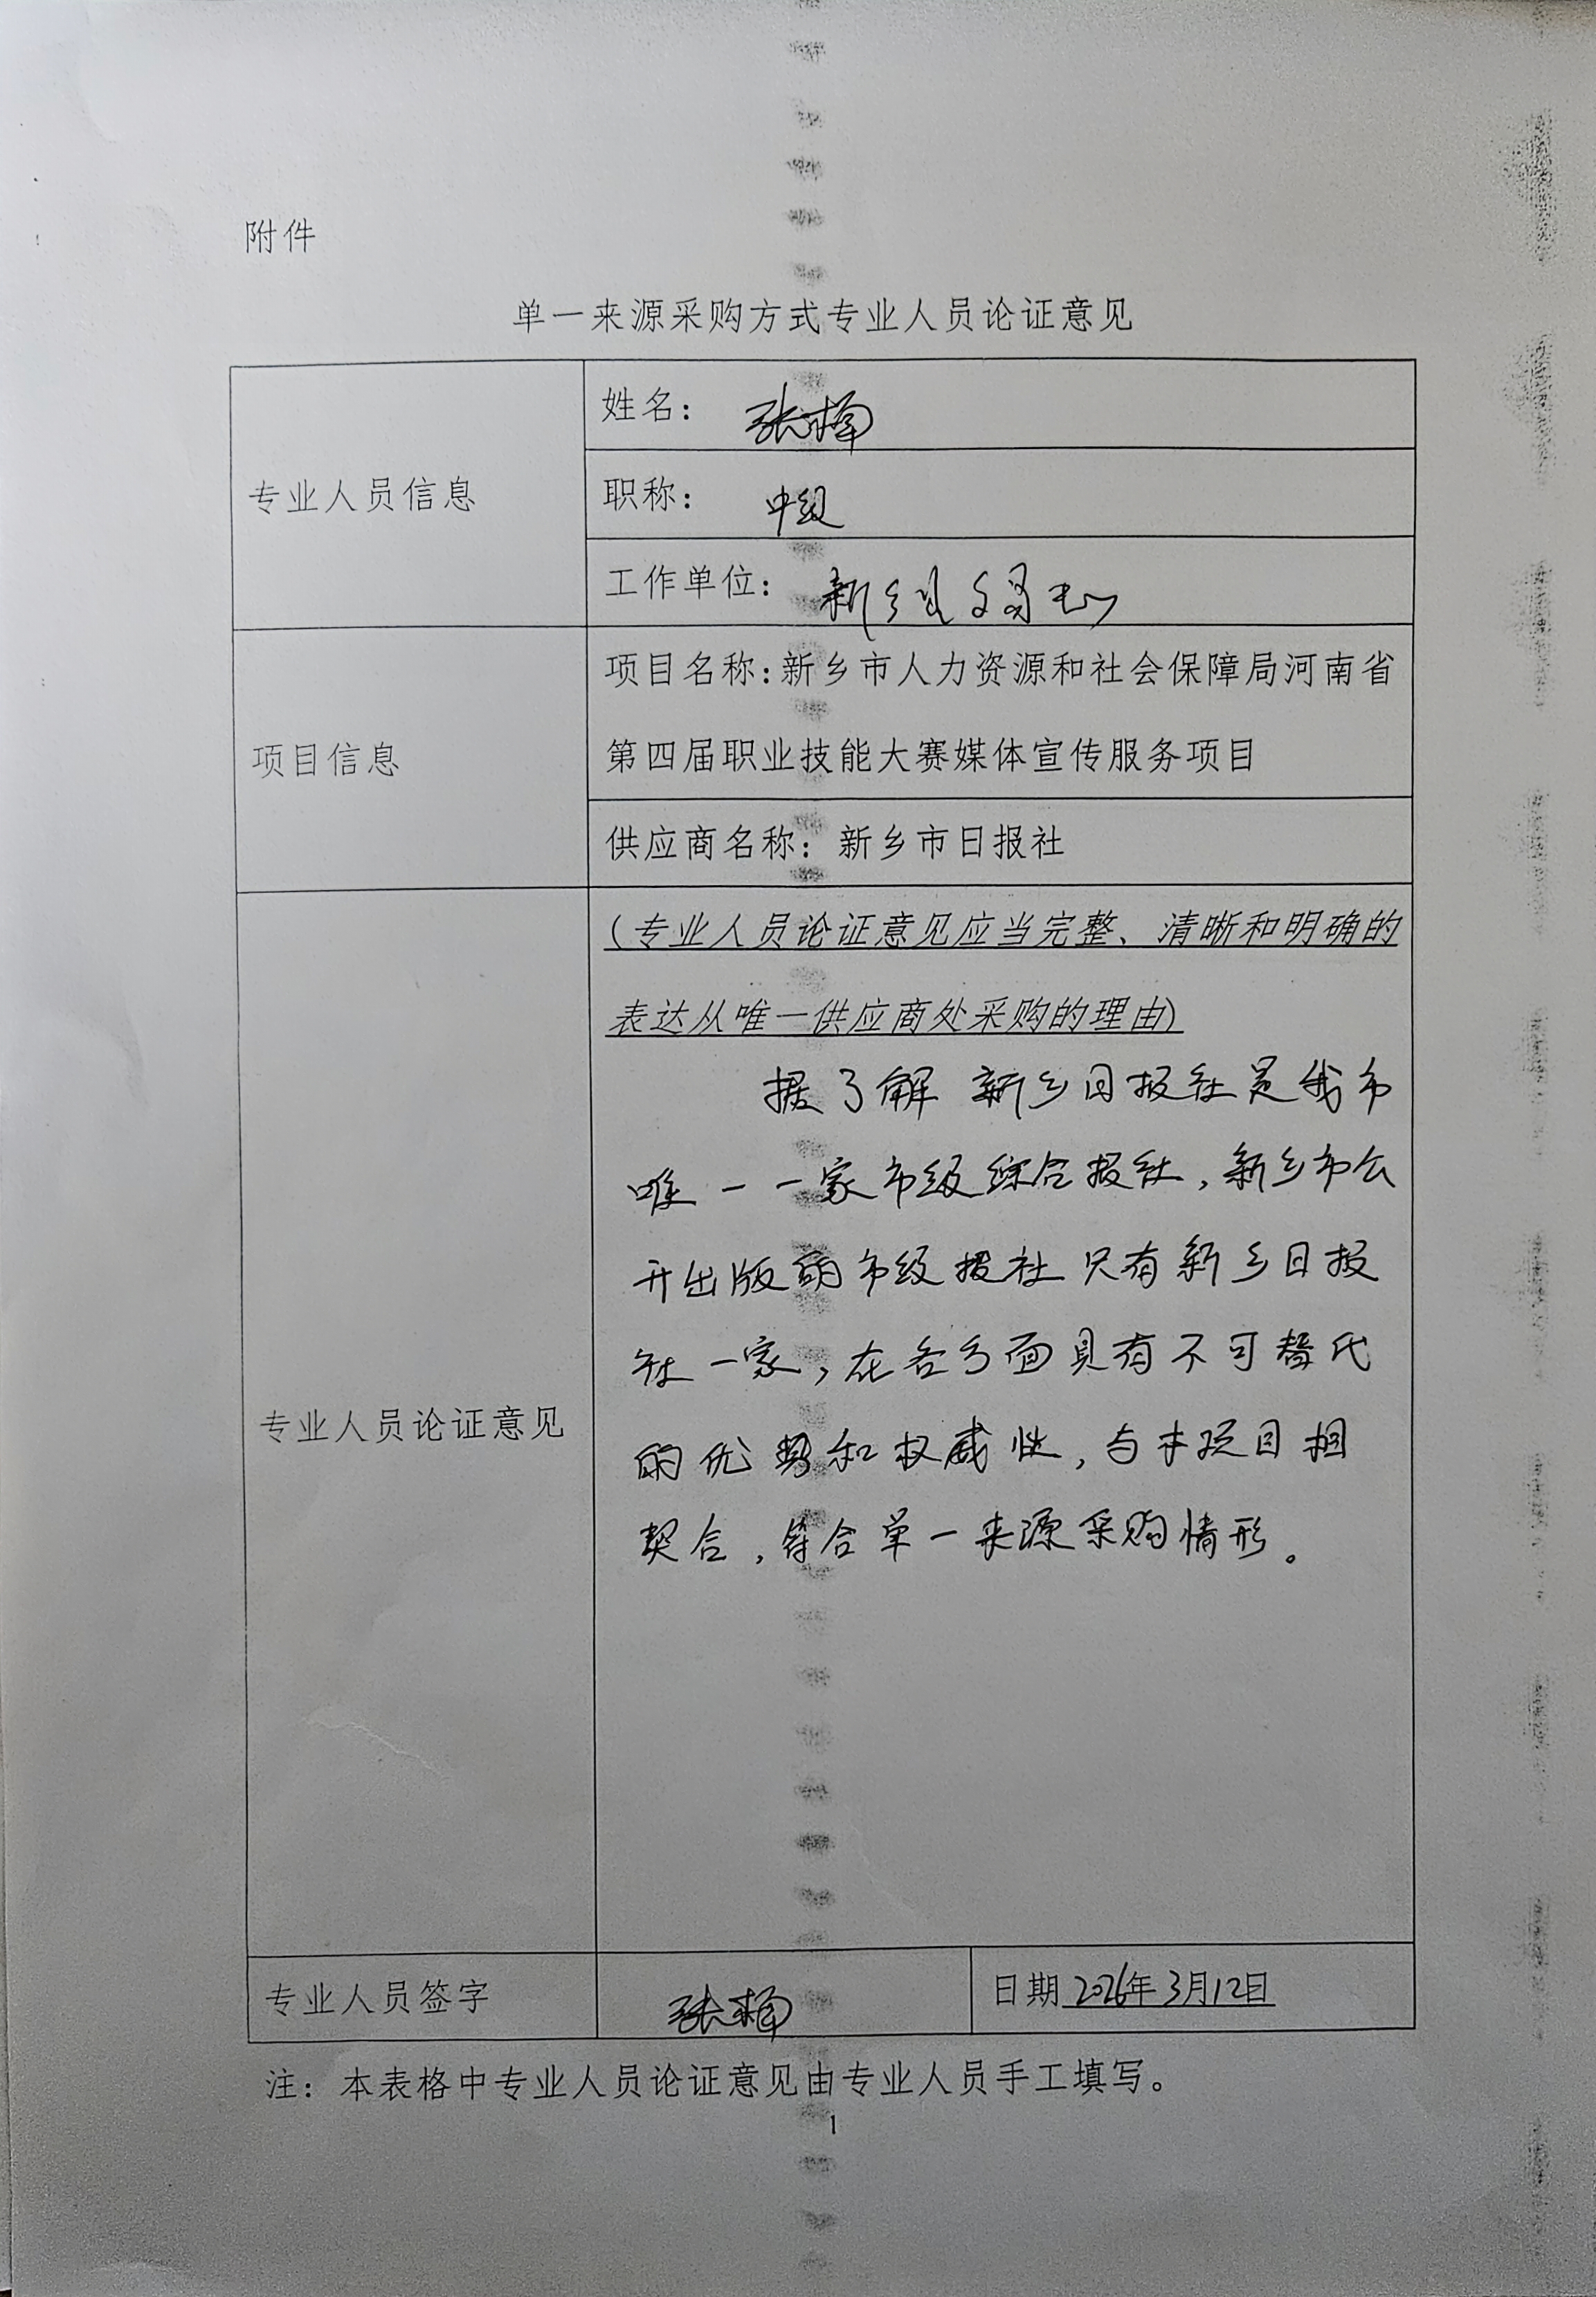 附件
单一来源采购方式专业人员论证意见
专业人员信息
姓名：张楠
职称：中级
工作单位：新乡县
项目信息
项目名称：新乡市人力资源和社会保障局河南省
第四届职业技能大赛媒体宣传服务项目
供应商名称：新乡市日报社
专业人员论证意见
（专业人员论证意见应当完整、清晰和明确的
表达从唯一供应商处采购的理由）
据了解 新乡日报社是我市
唯一一家市级综合报社，新乡市公
开出版的市级报社只有新乡日报
社一家，在各方面具有不可替代
的优势和权威性，与本项目相
契合，符合单一来源采购情形。
专业人员签字
张楠
日期 2026年3月12日
注：本表格中专业人员论证意见由专业人员手工填写。
1